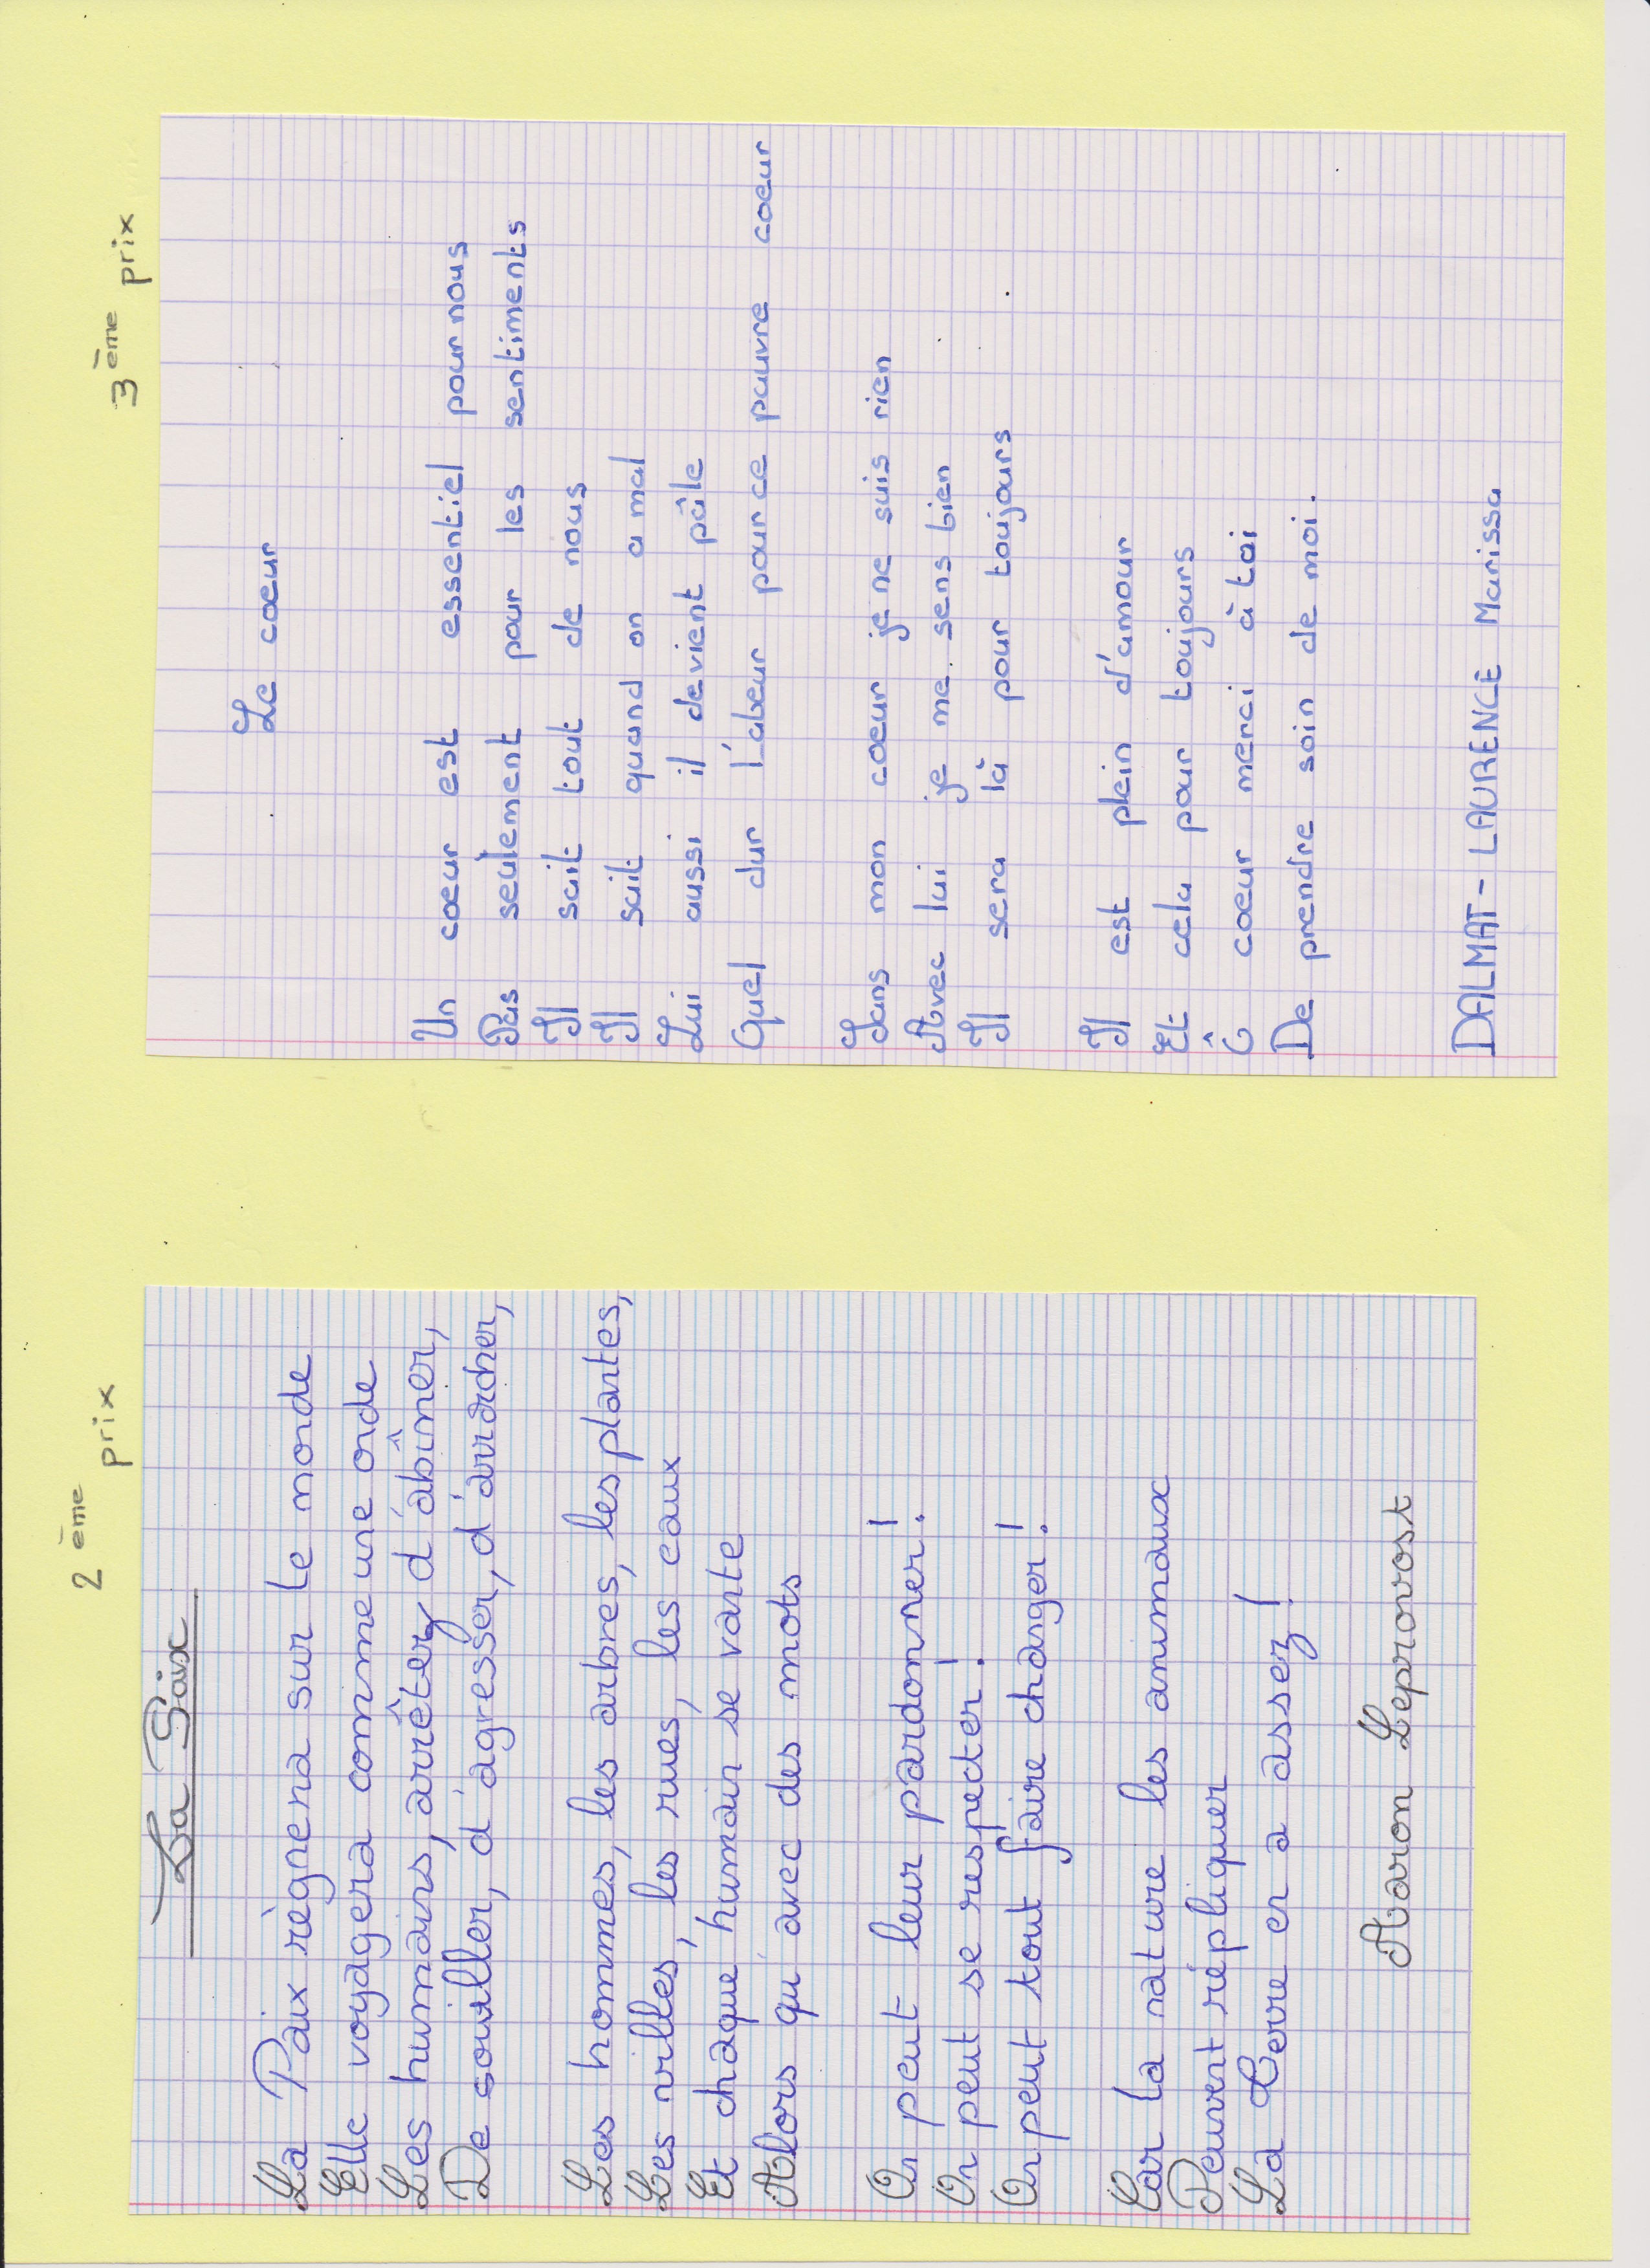 2ème prix
La Paix
La Paix règnena sur le monde
Elle voyagera comme une onde
Les humains, arrêtez d'abîmer,
De souiller, d'agresser, d'arracher,
Les hommes, les arbres, les plantes,
Les villes, les rues, les eaux
Et chaque humain se vante
Alors qu'avec des mots
On peut leur pardonner !
On peut se respecter !
On peut tout faire changer !
Car la nature les animaux
Peuvent répliquer
La Terre en a assez !
Aaron Leprovost
3ème prix
Le coeur
Un coeur est essentiel pour nous
Pas seulement pour les sentiments
Il sait tout de nous
Il sait quand on a mal
Lui aussi il devient pâle
Quel dur l'abeur pour ce pauvre coeur
Sans mon coeur je ne suis rien
Avec lui je me sens bien
Il sera là pour toujours
Il est plein d'amour
Et cela pour toujours
Ô coeur merci à toi
De prendre soin de moi.
DALMAT-LAURENCE Marissa